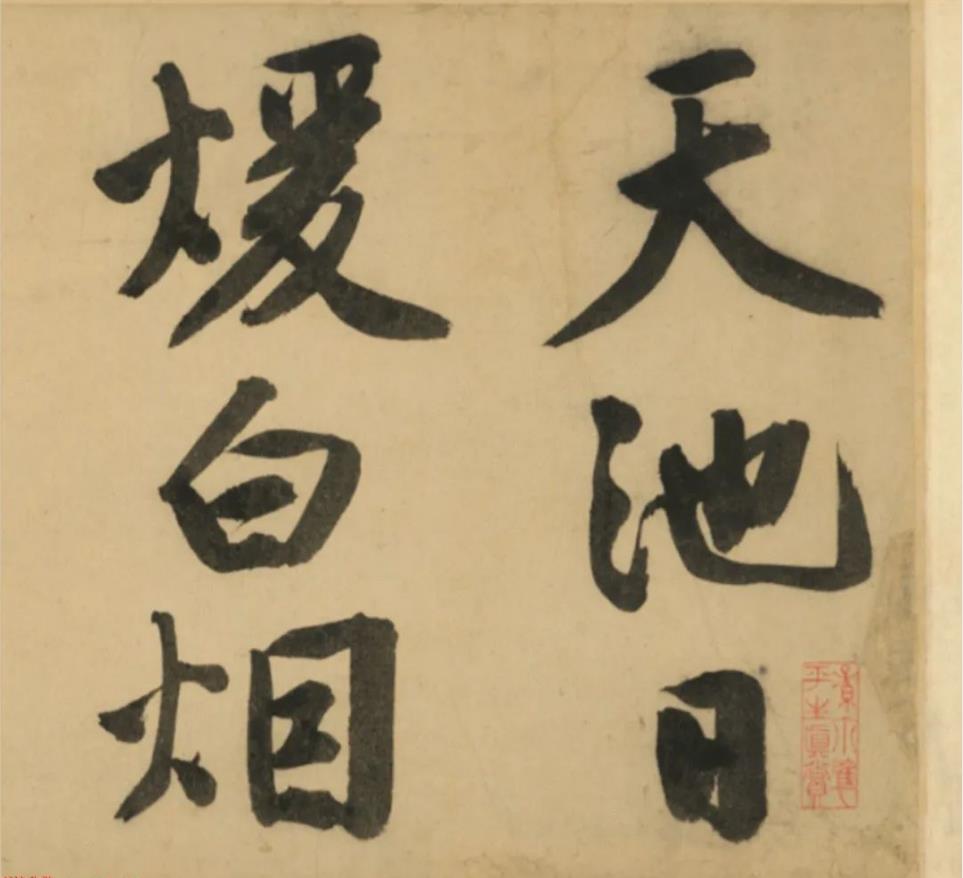 天池日
煖白烟